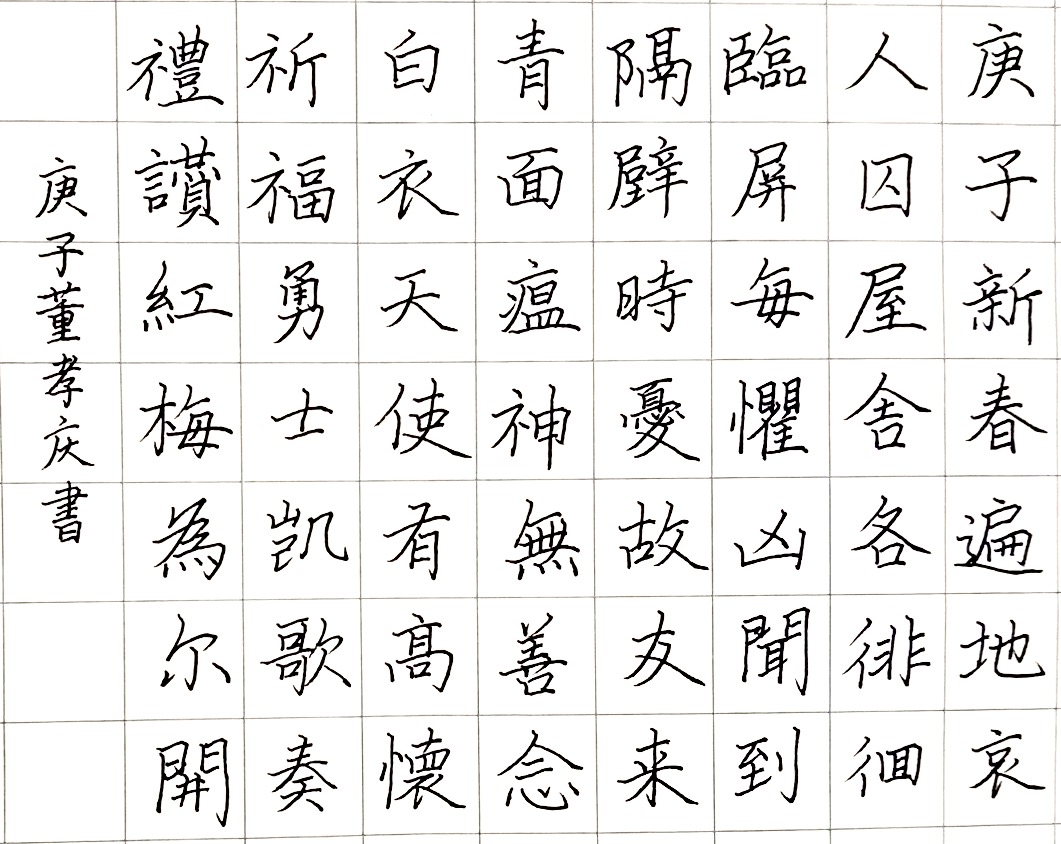 庚子新春遍地哀
人囚屋舍各徘徊
臨屏每懼凶聞到
隔壁時憂故友来
青面瘟神無善念
白衣天使有高懷
祈福勇士凯歌奏
禮讚紅梅為尔開
庚子董孝庆書